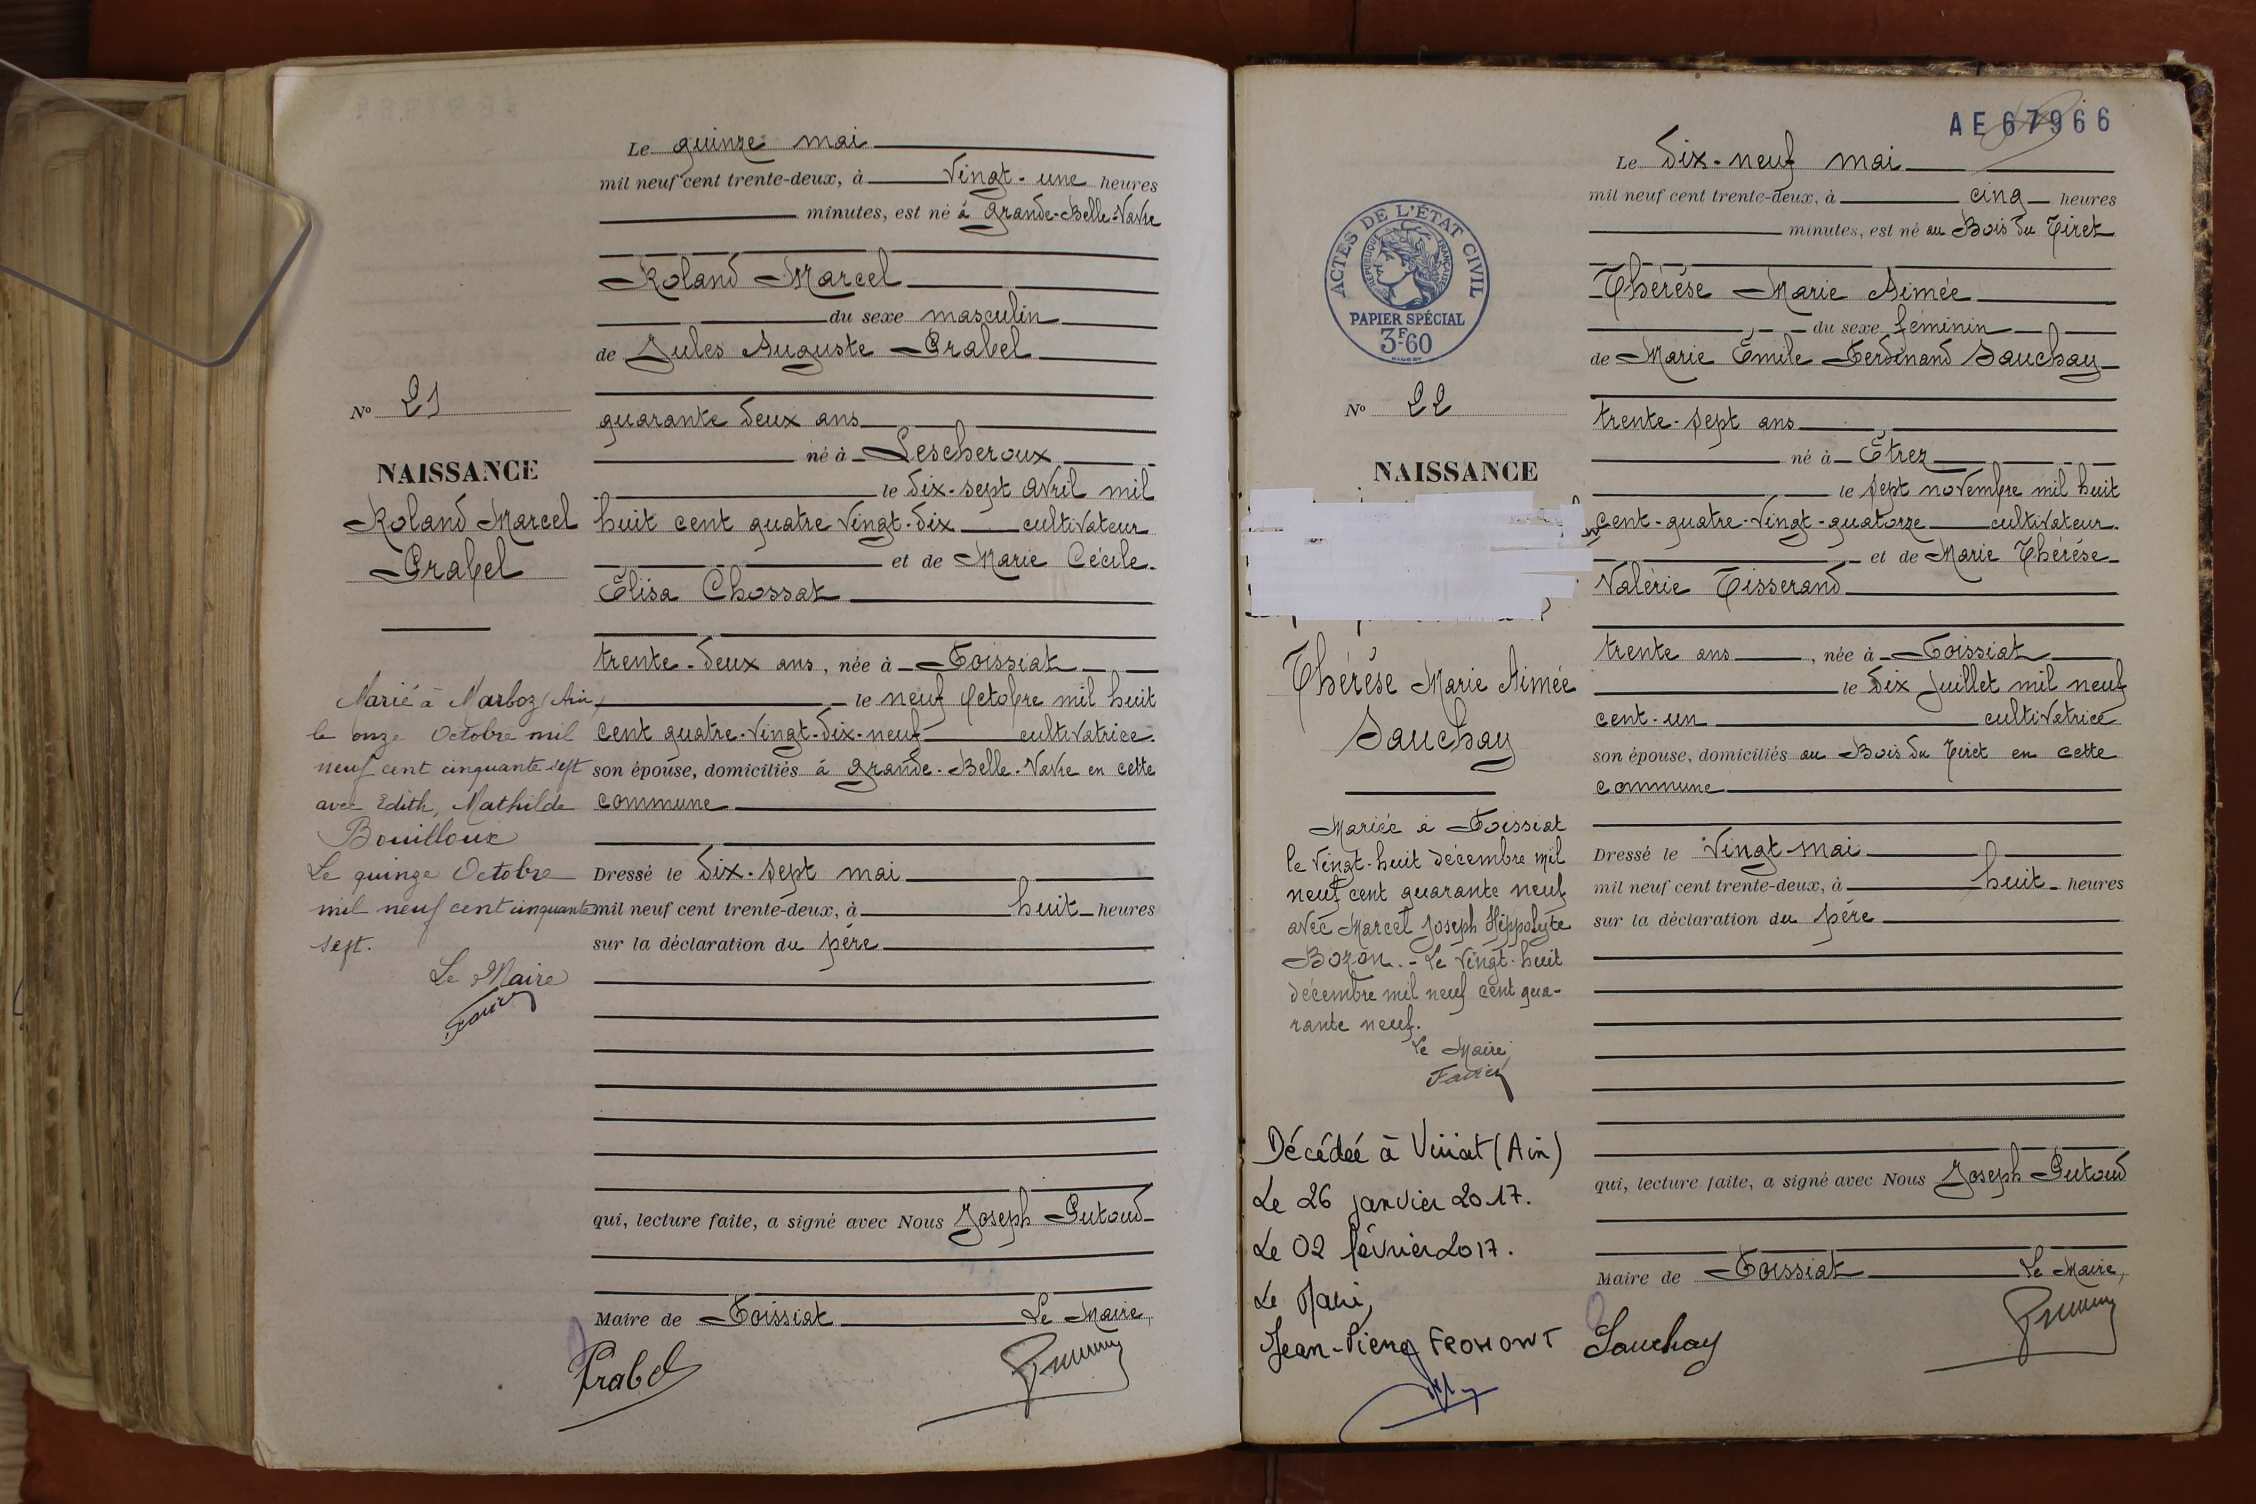 Le quinze mai
mil neuf cent trente-deux, à vingt-une heures
minutes, est né à Grande-Belle-Vavre
Roland Marcel
du sexe masculin
de Jules Auguste Prabel
quarante deux ans
né à Lescheroux
le dix-sept avril mil
huit cent quatre vingt-dix cultivateur
et de Marie Cécile
Élisa Chossat
trente-deux ans, née à Foissiat
le neuf octobre mil huit
cent quatre-vingt-dix-neuf cultivatrice.
son épouse, domiciliés à Grande-Belle-Vavre en cette
commune
Dressé le dix-sept mai
mil neuf cent trente-deux, à huit heures
sur la déclaration du père
qui, lecture faite, a signé avec Nous Joseph Putoud
Maire de Foissiat Le Maire,
Prabel
No 21
NAISSANCE
Roland Marcel
Prabel
Marié à Marboz (Ain)
le onze Octobre mil
neuf cent cinquante sept
avec Edith, Mathilde
Bouilloux
Le quinze Octobre
mil neuf cent cinquante
sept.
Le Maire
AE 67966
ACTES DE L'ÉTAT CIVIL
RÉPUBLIQUE FRANÇAISE
PAPIER SPÉCIAL
3F60
No 22
NAISSANCE
Thérèse Marie Aimée
Sauchay
Mariée à Foissiat
le vingt-huit décembre mil
neuf cent quarante neuf
avec Marcel Joseph Hippolyte
Bozon.- Le vingt-huit
décembre mil neuf cent qua-
rante neuf.
Le Maire,
Décédée à Viriat (Ain)
Le 26 janvier 2017.
Le 02 février 2017.
Le Maire,
Jean-Pierre FROMONT
Le dix-neuf mai
mil neuf cent trente-deux, à cinq heures
minutes, est né au Bois du Tiret
Thérèse Marie Aimée
du sexe féminin
de Marie Émile Ferdinand Sauchay
trente-sept ans
né à Étrez
le sept novembre mil huit
cent-quatre-vingt-quatorze cultivateur.
et de Marie Thérèse
Valérie Tisserand
trente ans, née à Foissiat
le dix juillet mil neuf
cent-un cultivatrice
son épouse, domiciliés au Bois du Tiret en cette
commune
Dressé le vingt mai
mil neuf cent trente-deux, à huit heures
sur la déclaration du père
qui, lecture faite, a signé avec Nous Joseph Putoud
Maire de Foissiat Le Maire,
Sauchay